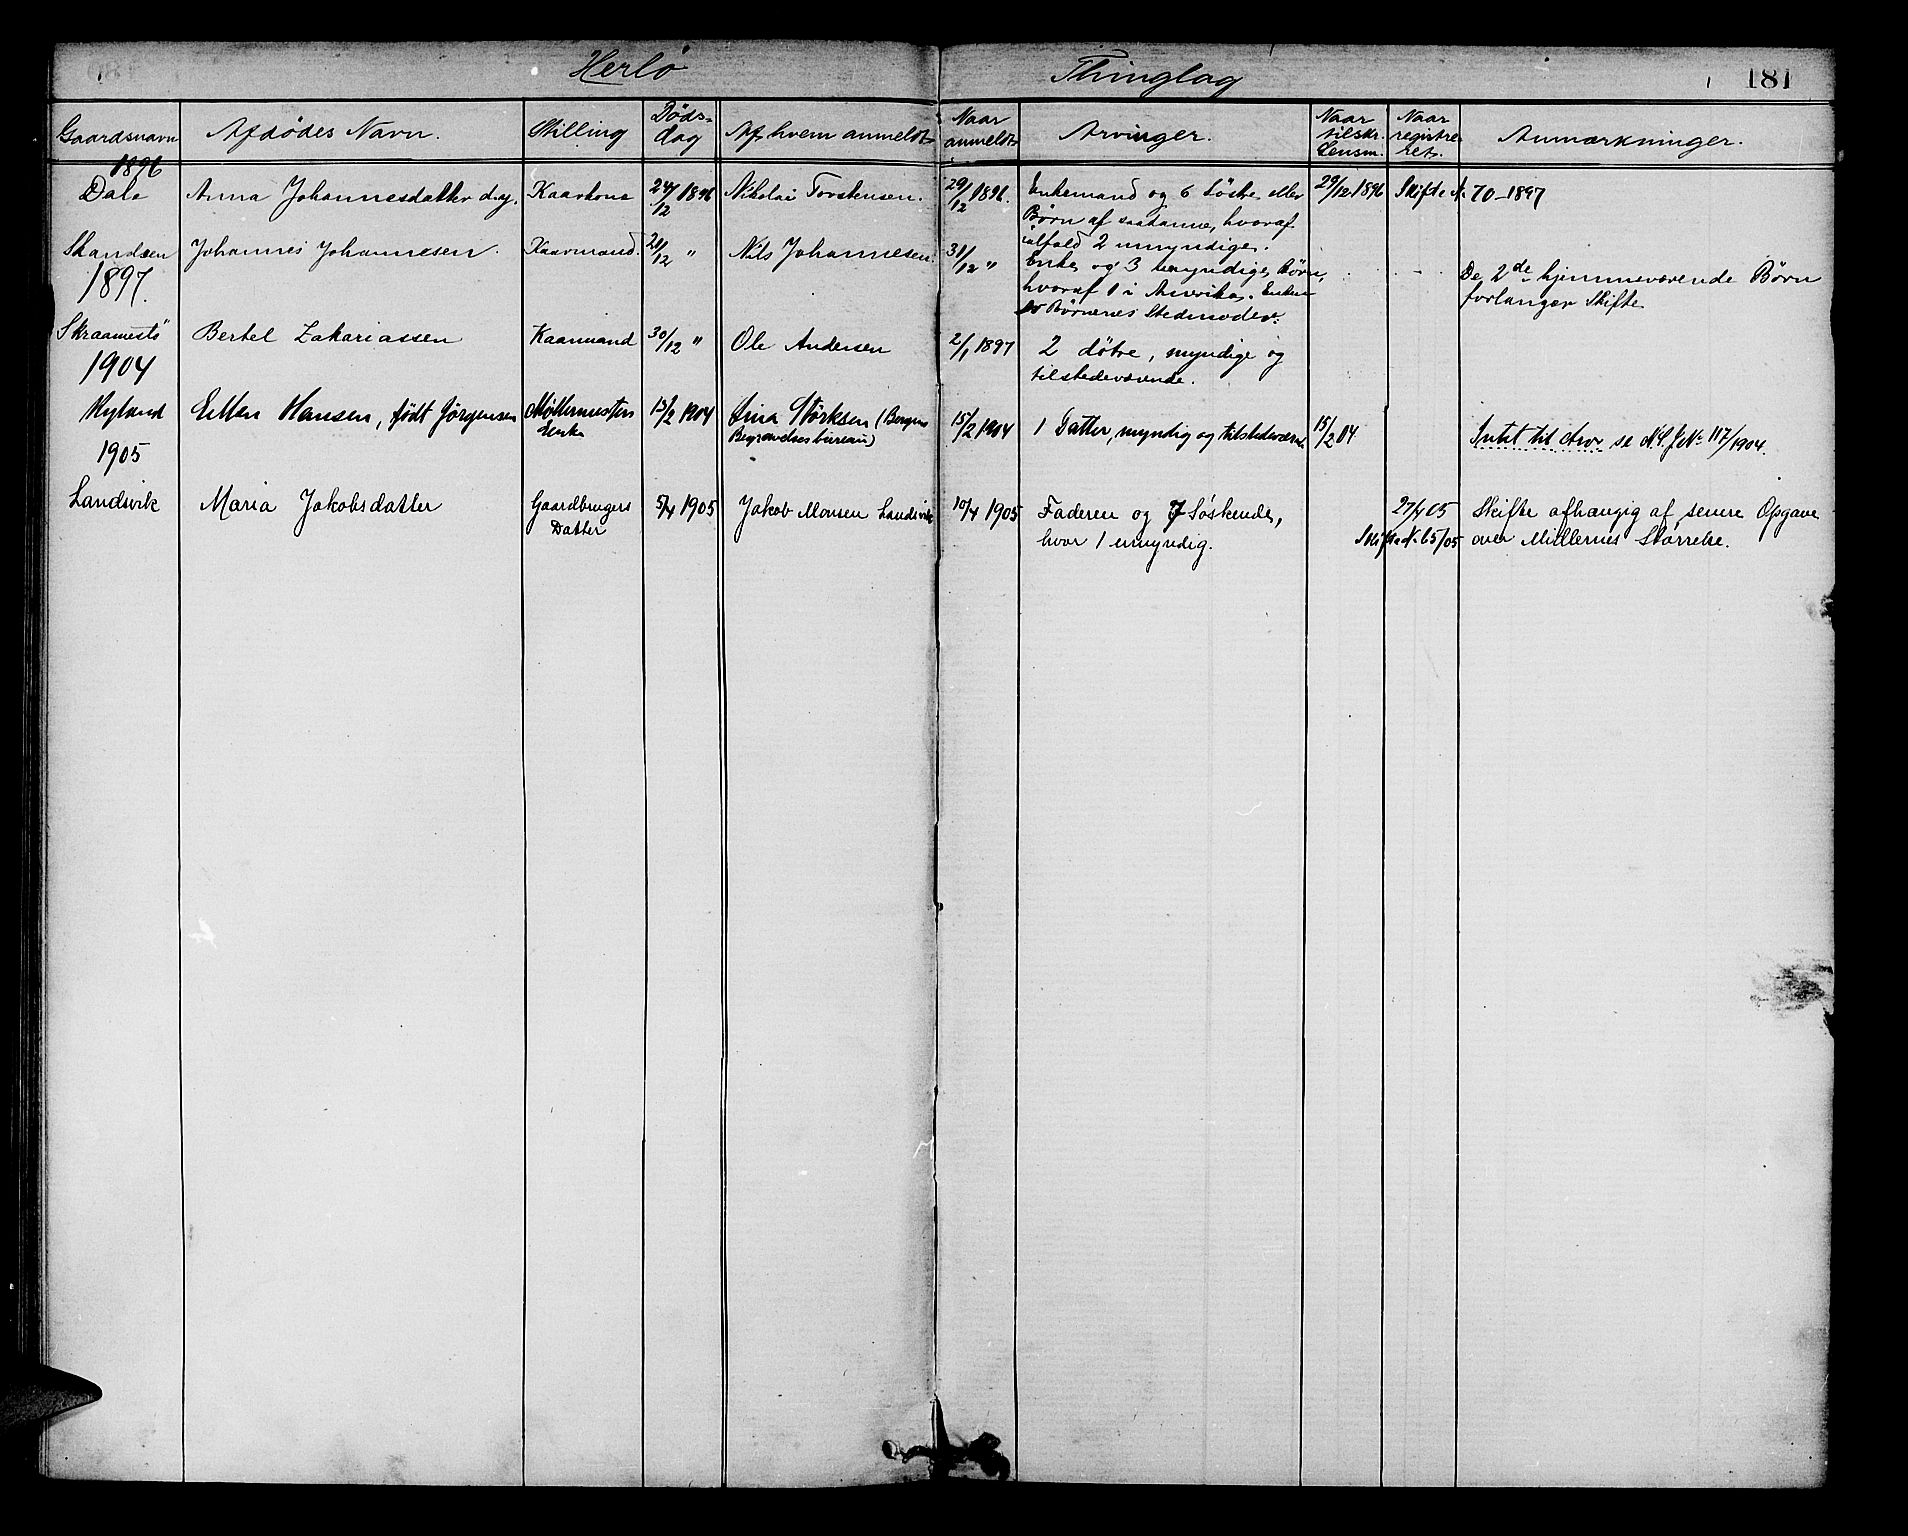 Herlø Thinglag 181
Gaardsnavn Afdødes Navn. Stilling Døds-dag Af hvem anmeldt Naar anmeldt Arvinger. Naar tilskr. Lensm. Naar registreret. Anmærkninger.
1896
Dale Anna Johannesdatter d.y. Kaarkone 24/12 1896 Nikolai Torstensen. 29/12 1896. Enkemand og 6 Søstre eller 29/12 1896 Skifte N. 70-1897
Børn af saadanne, hvoraf
ialfald 2 umyndige.
Skandsen Johannes Johannesen. Kaarmand. 12 " Nils Johannesen. 31/12 " Enke og 3 myndige Børn,
hvoraf 1 i Amerika. Enken
er Børnenes Stedmoder.
De 2de hjemmeværende Børn
forlanger Skifte
1897.
Skraamestø Bertel Zakariassen Kaarmand 30/12 " Ole Andersen 2/1 1897 2 døtre, myndige og
tilstedeværende.
1904
Ellen Hansen, født Jørgensen Møllermesters 13/2 1904 Lina Størksen (Bergens 15/2 1904 1 Datter, myndig og tilstedeværende 15/2 04 Intet til Arv se No 117/1904.
Enke Begravelsesbureau)
1905
Landsvik Maria Jakobsdatter Gaardbrugers 5/4 1905 Jakob Monsen Landsvik 10/4 1905 Faderen og 7 Søskende, 27/4 05 Skifte afhængig af senere Opgave
Datter hvor 1 umyndig. Skifte N. 65/05 over Midlernes Størrelse.